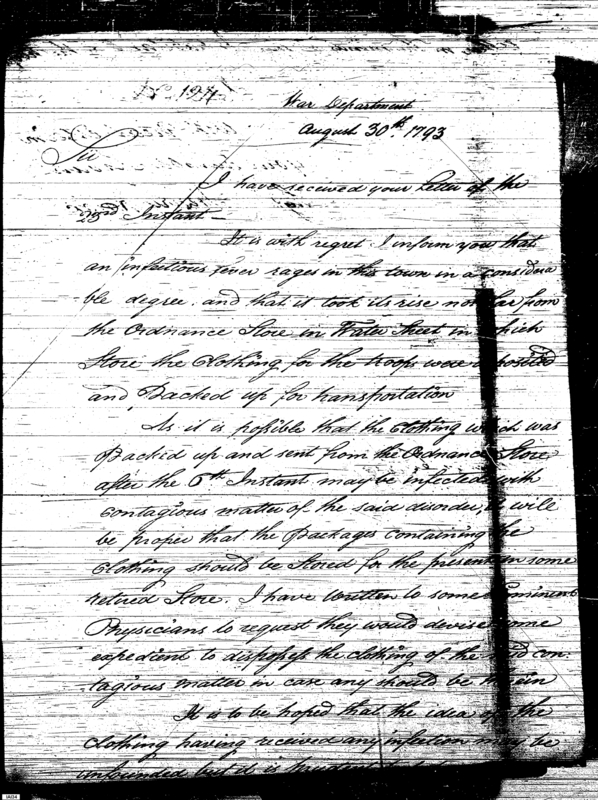 No 194
War Department
August 30th. 1793
Sir
I have received your Letter of the
23rd Instant—
It is with regret I inform you that
an infectious fever rages in this town in a considera
ble degree. and that it took its rise not far from
the Ordnance Store in Water Street in which
Store the Clothing for the troops were deposited
and Packed up for transportation
As it is possible that the Clothing which was
Packed up and sent from the Ordnance Store
after the 6th Instant may be infected with
contagious matter of the said disorder, it will
be proper that the Packages containing the
Clothing should be Stored for the present in some
retired Store. I have written to some eminent
Physicians to request they would devise some
expedient to dispossess the clothing of the said con-
tagious matter in case any should be therein
It is to be hoped that the idea of the
Clothing having received any infection may be
unfounded but it is prudent